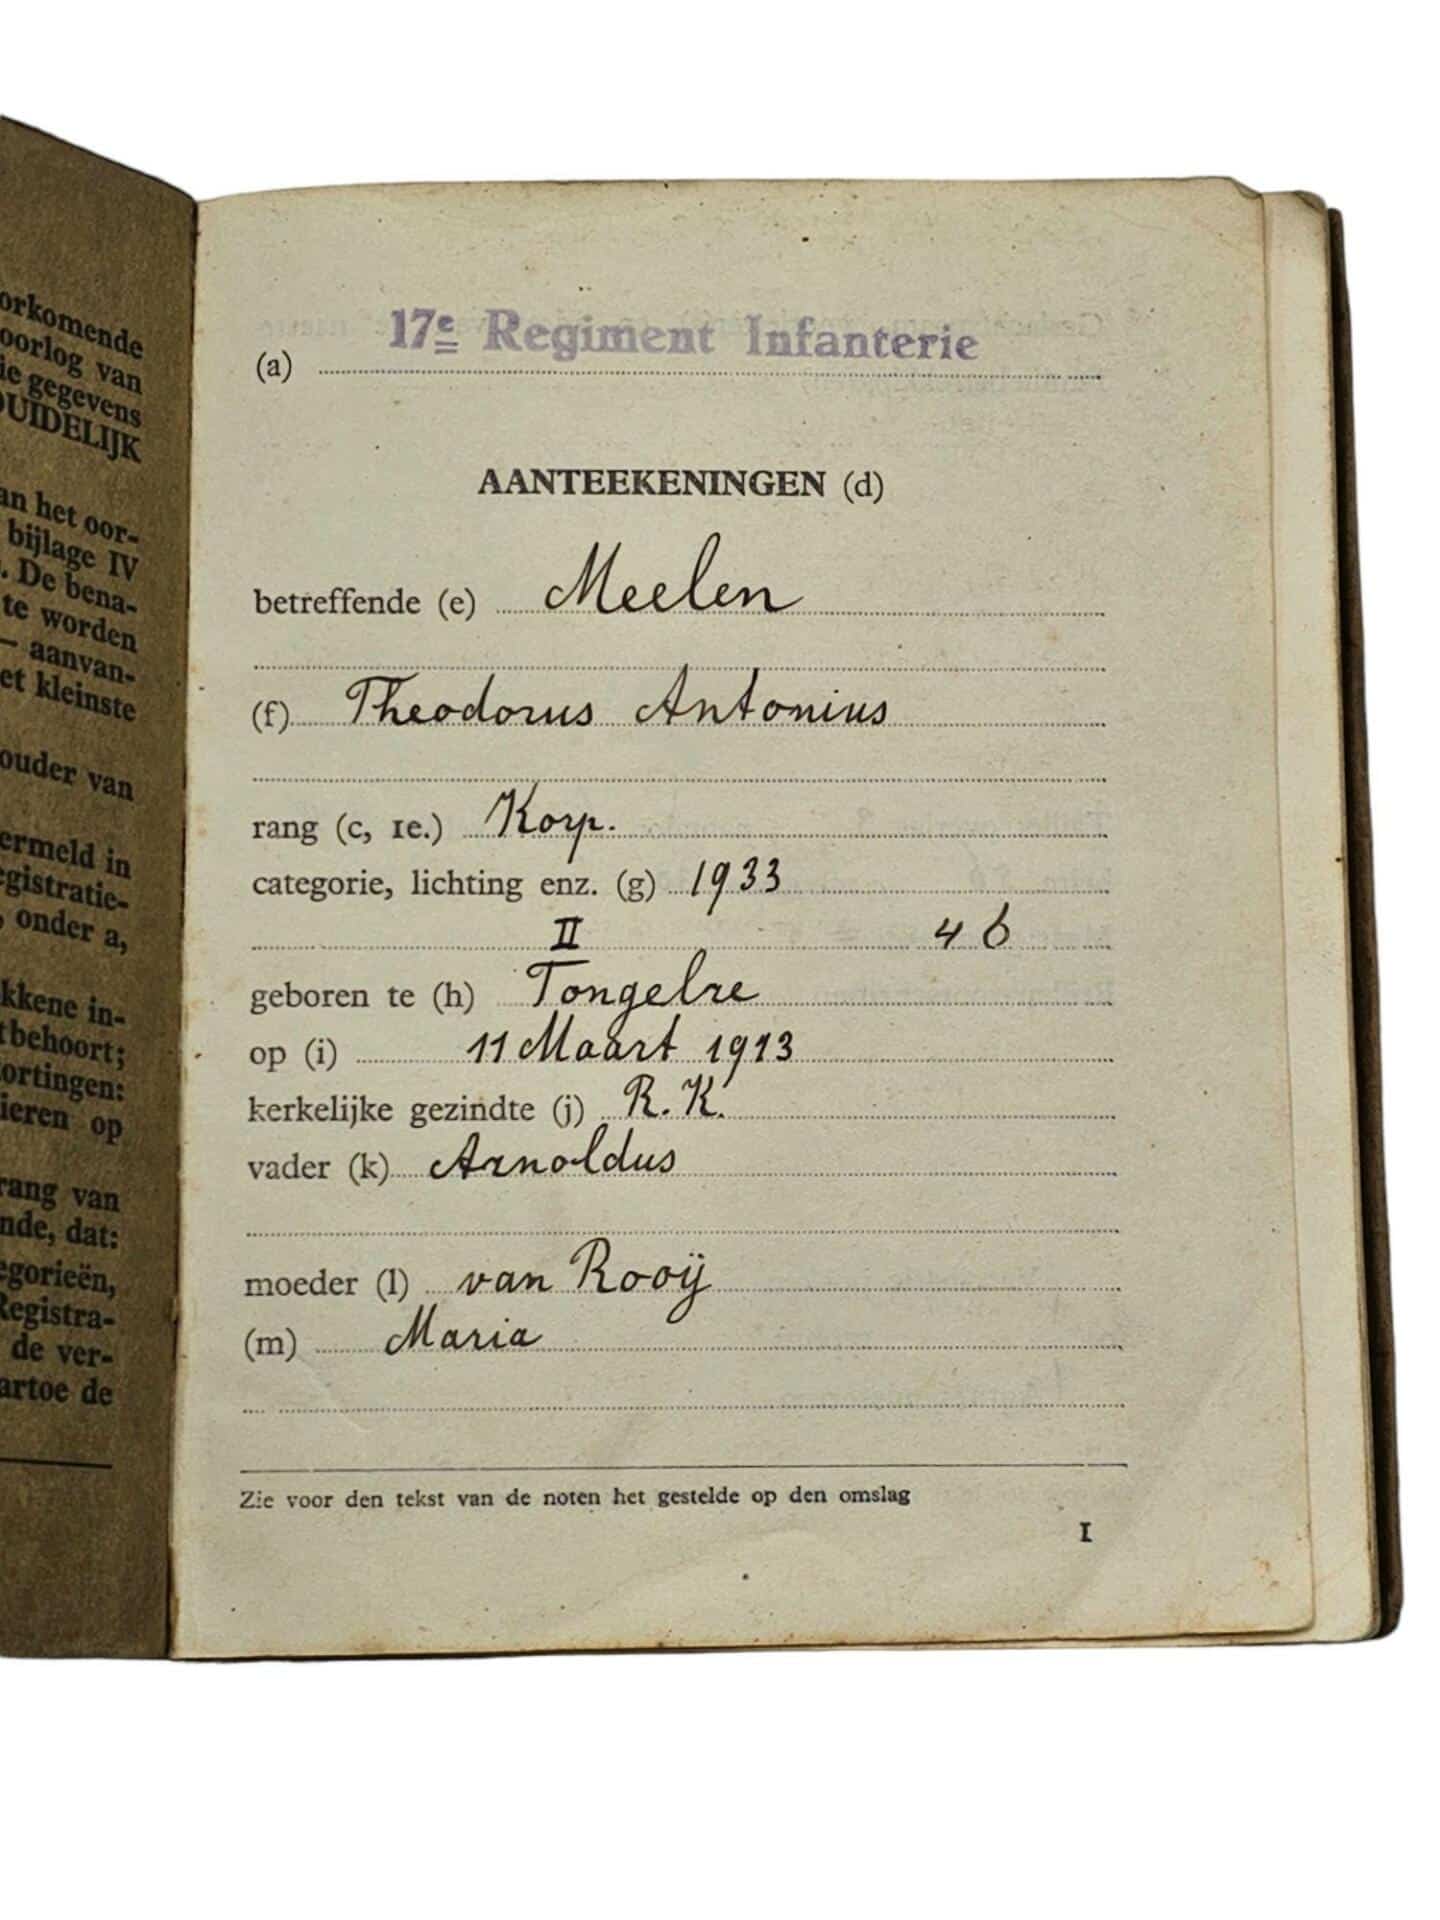 orkomende
oorlog van
ie gegevens
DUIDELIJK
an het oor-
bijlage IV
. De bena-
te worden
— aanvan-
et kleinste
ouder van
ermeld in
egistratie-
, onder a,
kkene in-
tbehoort;
ortingen:
ieren op
rang van
nde, dat:
egorieën,
Registra-
de ver-
artoe de
17e Regiment Infanterie
(a)
AANTEEKENINGEN (d)
betreffende (e) Meelen
(f) Theodorus Antonius
rang (c, 1e.) Korp.
categorie, lichting enz. (g) 1933
II 46
geboren te (h) Tongelre
op (i) 11 Maart 1913
kerkelijke gezindte (j) R.K.
vader (k) Arnoldus
moeder (l) van Rooij
(m) Maria
Zie voor den tekst van de noten het gestelde op den omslag
1